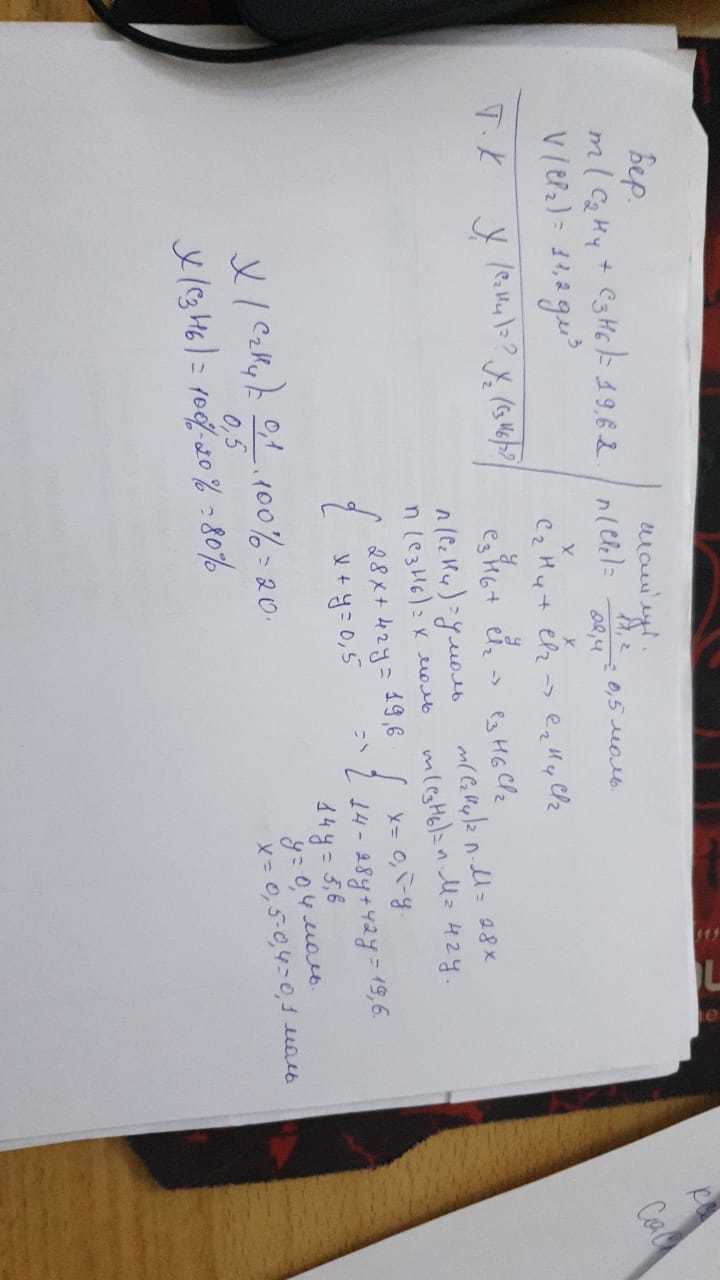 Бер.
m(C₂H₄ + C₃H₆) = 19,6 г.
V(Cl₂) = 11,2 дм³
Т.К χ₁(C₂H₄)=? χ₂(C₃H₆)=?
шешімі.
n(Cl₂) = 11,2/22,4 = 0,5 моль.
x x
C₂H₄ + Cl₂ → C₂H₄Cl₂
y y
C₃H₆ + Cl₂ → C₃H₆Cl₂
n(C₂H₄) = y моль m(C₂H₄) = n·M = 28x
n(C₃H₆) = x моль m(C₃H₆) = n·M = 42y.
{ 28x + 42y = 19,6. => { x = 0,5-y.
x + y = 0,5 14 - 28y + 42y = 19,6.
14y = 5,6
y = 0,4 моль.
x = 0,5-0,4 = 0,1 моль
χ(C₂H₄) = 0,1/0,5 · 100% = 20.
χ(C₃H₆) = 100%-20% = 80%